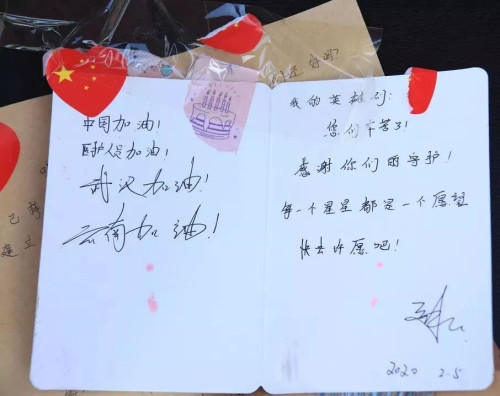 中国加油!
医护人员加油!
武汉加油!
云南加油!
我的英雄们:
您们辛苦了!
感谢你们的守护!
每一个星星都是一个愿望
快去许愿吧!
2020 2.5